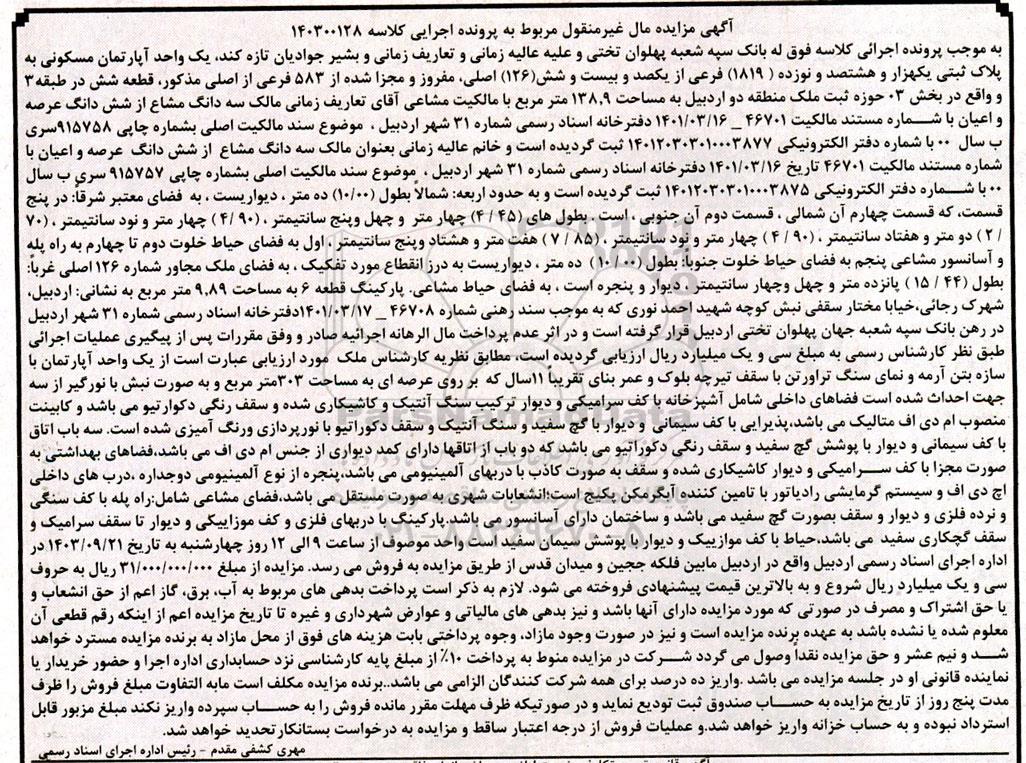 آگهی مزایده مال غیرمنقول مربوط به پرونده اجرایی کلاسه ۱۴۰۳۰۰۱۲۸
به موجب پرونده اجرائی کلاسه فوق له بانک سپه شعبه پهلوان تختی و علیه عالیه زمانی و تعاریف زمانی و بشیر جوادیان تازه کند، یک واحد آپارتمان مسکونی به
پلاک ثبتی یکهزار و هشتصد و نوزده ( ۱۸۱۹) فرعی از یکصد و بیست و شش(۱۲۶) اصلی، مفروز و مجزا شده از ۵۸۳ فرعی از اصلی مذکور، قطعه شش در طبقه ۳
و واقع در بخش ۰۳ حوزه ثبت ملک منطقه دو اردبیل به مساحت ۱۳۸,۹ متر مربع با مالکیت مشاعی آقای تعاریف زمانی مالک سه دانگ مشاع از شش دانگ عرصه
و اعیان با شـــماره مستند مالکیت ۴۶۷۰۱ _ ۱۴۰۱/۰۳/۱۶ دفترخانه اسناد رسمی شماره ۳۱ شهر اردبیل ، موضوع سند مالکیت اصلی بشماره چاپی ۹۱۵۷۵۸سری
ب سال ۰۰ با شماره دفتر الکترونیکی ۱۴۰۱۲۰۳۰۳۰۱۰۰۰۳۸۷۷ ثبت گردیده است و خانم عالیه زمانی بعنوان مالک سه دانگ مشاع از شش دانگ عرصه و اعیان با
شماره مستند مالکیت ۴۶۷۰۱ تاریخ ۱۴۰۱/۰۳/۱۶ دفترخانه اسناد رسمی شماره ۳۱ شهر اردبیل ، موضوع سند مالکیت اصلی بشماره چاپی ۹۱۵۷۵۷ سری ب سال
۰۰ با شــــماره دفتر الکترونیکی ۱۴۰۱۲۰۳۰۳۰۱۰۰۰۳۸۷۵ ثبت گردیده است و به حدود اربعه: شمالاً بطول (۱۰/۰۰) ده متر ، دیواریست ، به فضای معتبر شرقاً: در پنج
قسمت، که قسمت چهارم آن شمالی ، قسمت دوم آن جنوبی ، است . بطول های (۴۵ / ۴) چهار متر و چهل وپنج سانتیمتر ، (۹۰ /۴) چهار متر و نود سانتیمتر ، (۷۰
/ ۲) دو متر و هفتاد سانتیمتر ، (۹۰ / ۴) چهار متر و نود سانتیمتر ، (۸۵ / ۷) هفت متر و هشتاد وپنج سانتیمتر ، اول به فضای حیاط خلوت دوم تا چهارم به راه پله
و آسانسور مشاعی پنجم به فضای حیاط خلوت جنوباً: بطول (۱۰/۰۰) ده متر ، دیواریست به درز انقطاع مورد تفکیک ، به فضای ملک مجاور شماره ۱۲۶ اصلی غرباً:
بطول (۴۴ / ۱۵) پانزده متر و چهل وچهار سانتیمتر ، دیوار و پنجره است ، به فضای حیاط مشاعی. پارکینگ قطعه ۶ به مساحت ۹,۸۹ متر مربع به نشانی: اردبیل،
شهرک رجائی،خیابا مختار سقفی نبش کوچه شهید احمد نوری که به موجب سند رهنی شماره ۴۶۷۰۸ _ ۱۴۰۱/۰۳/۱۷دفترخانه اسناد رسمی شماره ۳۱ شهر اردبیل
در رهن بانک سپه شعبه جهان پهلوان تختی اردبیل قرار گرفته است و در اثر عدم پرداخت مال الرهانه اجرائیه صادر و وفق مقررات پس از پیگیری عملیات اجرائی
طبق نظر کارشناس رسمی به مبلغ سی و یک میلیارد ریال ارزیابی گردیده است، مطابق نظریه کارشناس ملک مورد ارزیابی عبارت است از یک واحد آپارتمان با
سازه بتن آرمه و نمای سنگ تراورتن با سقف تیرچه بلوک و عمر بنای تقریبا ۱۱سال که بر روی عرصه ای به مساحت ۳۰۳متر مربع و به صورت نبش با نورگیر از سه
جهت احداث شده است فضاهای داخلی شامل آشپزخانه با کف سرامیکی و دیوار ترکیب سنگ آنتیک و کاشیکاری شده و سقف رنگی دکوارتیو می باشد و کابینت
منصوب ام دی اف متالیک می باشد،پذیرایی با کف سیمانی و دیوار با گچ سفید و سنگ آنتیک و سقف دکوراتیو با نورپردازی ورنگ آمیزی شده است. سه باب اتاق
با کف سیمانی و دیوار با پوشش گچ سفید و سقف رنگی دکوراتیو می باشد که دو باب از اتاقها دارای کمد دیواری از جنس ام دی اف می باشد،فضاهای بهداشتی به
صورت مجزا با کف ســـرامیکی و دیوار کاشیکاری شده و سقف به صورت کاذب با دربهای آلمینیومی می باشد،پنجره از نوع آلمینیومی دوجداره ،درب های داخلی
اچ دی اف و سیستم گرمایشی رادیاتور با تامین کننده آبگرمکن پکیج است؛انشعابات شهری به صورت مستقل می باشد،فضای مشاعی شامل:راه پله با کف سنگی
و نرده فلزی و دیوار و سقف بصورت گچ سفید می باشد و ساختمان دارای آسانسور می باشد.پارکینگ با دربهای فلزی و کف موزاییکی و دیوار تا سقف سرامیک و
سقف گچکاری سفید می باشد،حیاط با کف موازییک و دیوار با پوشش سیمان سفید است واحد موصوف از ساعت ۹ الی ۱۲ روز چهارشنبه به تاریخ ۱۴۰۳/۰۹/۲۱ در
اداره اجرای اسناد رسمی اردبیل واقع در اردبیل مابین فلکه ججین و میدان قدس از طریق مزایده به فروش می رسد. مزایده از مبلغ ۳۱/۰۰۰/۰۰۰/۰۰۰ ریال به حروف
سی و یک میلیارد ریال شروع و به بالاترین قیمت پیشنهادی فروخته می شود. لازم به ذکر است پرداخت بدهی های مربوط به آب، برق، گاز اعم از حق انشعاب و
یا حق اشتراک و مصرف در صورتی که مورد مزایده دارای آنها باشد و نیز بدهی های مالیاتی و عوارض شهرداری و غیره تا تاریخ مزایده اعم از اینکه رقم قطعی آن
معلوم شده یا نشده باشد به عهده برنده مزایده است و نیز در صورت وجود مازاد، وجوه پرداختی بابت هزینه های فوق از محل مازاد به برنده مزایده مسترد خواهد
شــد و نیم عشر و حق مزایده نقداً وصول می گردد شــــرکت در مزایده منوط به پرداخت ۱۰٪ از مبلغ پایه کارشناسی نزد حسابداری اداره اجرا و حضور خریدار یا
نماینده قانونی او در جلسه مزایده می باشد .واریز ده درصد برای همه شرکت کنندگان الزامی می باشد..برنده مزایده مکلف است مابه التفاوت مبلغ فروش را ظرف
مدت پنج روز از تاریخ مزایده به حســـاب صندوق ثبت تودیع نماید و در صورتیکه ظرف مهلت مقرر مانده فروش را به حســـاب سپرده واریز نکند مبلغ مزبور قابل
استرداد نبوده و به حساب خزانه واریز خواهد شد.و عملیات فروش از درجه اعتبار ساقط و مزایده به درخواست بستانکارتحدید خواهد شد.
مهری کشفی مقدم - رئیس اداره اجرای اسناد رسمی
ParsNamadData